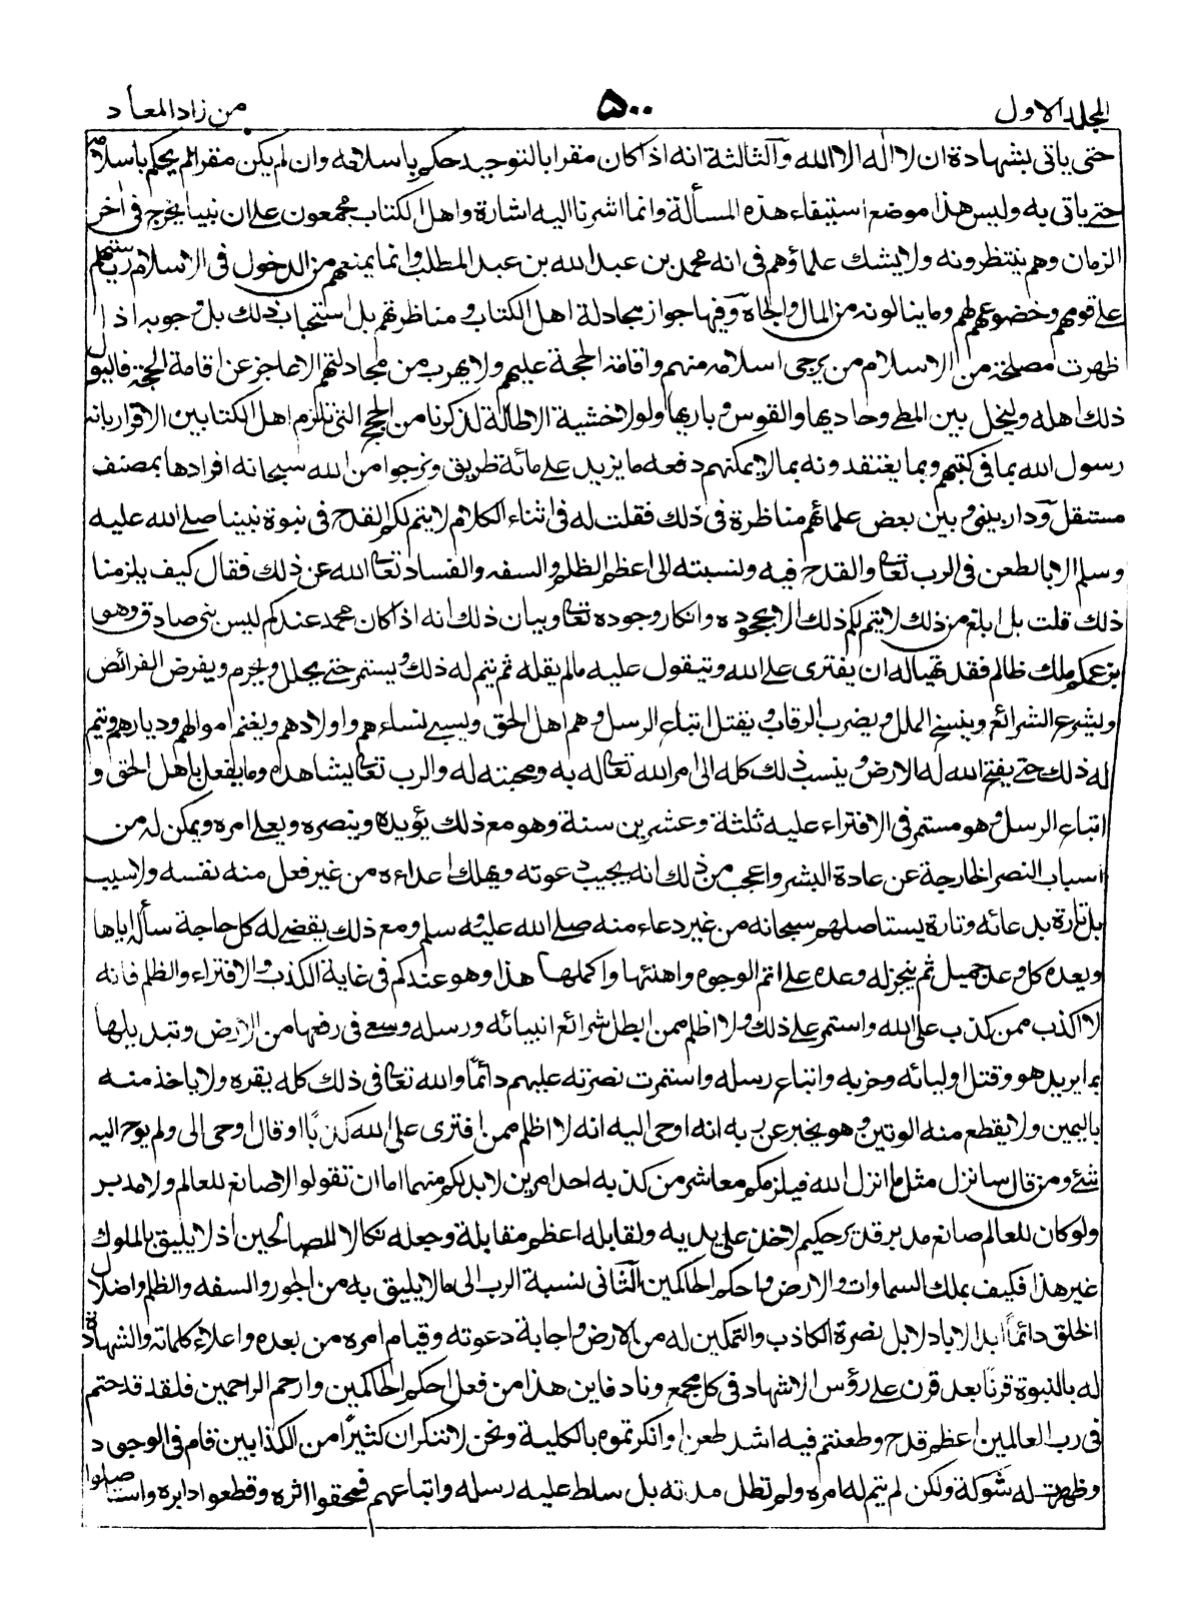 المجلد الاول ۵۰۰ من زاد المعاد
حتى ياتى بشهادة ان لا اله الا الله والثالثة انه اذا كان مقرا بالتوحيد حكم باسلامه وان لم يكن مقرا لم يحكم باسلامه
حتے ياتى به وليس هذا موضع استيفاء هذه المسألة وانما اشرنا اليه اشارة واهل الكتاب مجمعون علے ان نبيا يخرج فى اخر
الزمان وهم ينتظرونه ولا يشك علماؤهم فى انه محمد بن عبد الله بن عبد المطلب وانما يمنعهم من الدخول فى الاسلام رياستهم
علے قومهم وخضوعهم لهم وما ينالونه من المال والجاه وفيها جواز مجادلة اهل الكتاب ومناظرتهم بل استحباب ذلك بل وجوبه اذا
ظهرت مصلحته من الاسلام من يرجى اسلامه منهم واقامة الحجة عليهم ولا يهرب من مجادلتهم الا عاجز عن اقامة الحجة فليول
ذلك اهله وليخل بين المطے وحاديها والقوس وباريها ولولا خشية الاطالة لذكرنا من الحجج التى تلزم اهل الكتابين الاقرار بانه
رسول الله بما فى كتبهم وبما يعتقدونه بما لا يمكنهم دفعه ما يزيد علے مائة طريق ونرجوا من الله سبحانه افرادها بمصنف
مستقل ودار بينى وبين بعض علمائهم مناظرة فى ذلك فقلت له فى اثناء الكلام لا يتم لكم القدح فى نبوة نبينا صلے الله عليه
وسلم الا بالطعن فى الرب تعالى والقدح فيه ونسبته الى اعظم الظلم والسفه والفساد تعالى الله عن ذلك فقال كيف يلزمنا
ذلك قلت بل ابلغ من ذلك لا يتم لكم ذلك الا بجحوده وانكار وجوده تعالى وبيان ذلك انه اذا كان محمد عندكم ليس بنى صادق وهو
بزعمكم ملك ظالم فقد تهيا له ان يفترى علے الله ويتقول عليه ما لم يقله ثم يتم له ذلك ويستمر حتے يحلل ويحرم ويفرض الفرائض
ويشرع الشرائع وينسخ الملل ويضرب الرقاب ويقتل اتباع الرسل وهم اهل الحق ويسبے نساءهم واولادهم ويغنم اموالهم وديارهم ويتم
له ذلك حتے يفتح الله له الارض وينسب ذلك كله الى امر الله تعالى له به ومحبته له والرب تعالى يشاهده وما يفعل باهل الحق و
اتباع الرسل وهو مستمر فى الافتراء عليه ثلثة وعشرين سنة وهو مع ذلك يؤيده وينصره ويعلے امره ويمكن له من
اسباب النصر الخارجة عن عادة البشر واعجب من ذلك انه يجيب دعوته ويهلك اعداءه من غير فعل منه نفسه ولا سبب
بل تارة بدعائه وتارة يستاصلهم سبحانه من غير دعاء منه صلے الله عليه وسلم ومع ذلك يقضے له كل حاجة سأله اياها
ويعده كل وعد جميل ثم ينجز له وعده علے اتم الوجوه واهنئها واكملها هذا وهو عندكم فى غاية الكذب والافتراء والظلم فانه
لا اكذب ممن كذب على الله واستمر علے ذلك ولا اظلم ممن ابطل شرائع انبيائه ورسله وسعے فى رفعها من الارض وتبديلها
بما يريد هو وقتل اوليائه وحزبه واتباع رسله واستمرت نصرته عليهم دائمًا والله تعالى فى ذلك كله يقره ولا ياخذ منه
باليمين ولا يقطع منه الوتين وهو يخبر عن ربه انه اوحى اليه انه لا اظلم ممن افترى على الله كذبًا او قال اوحى الى ولم يوح اليه
شئے ومن قال سانزل مثل ما انزل الله فيلزمكم معاشر من كذبه احد امرين لا بد لكم منهما اما ان تقولوا لا صانع للعالم ولا مدبر
ولو كان للعالم صانع مدبر قدير حكيم لاخذ على يديه ولقابله اعظم مقابلة وجعله نكالا للصالحين اذ لا يليق بالملوك
غير هذا فكيف بملك السماوات والارض واحكم الحاكمين الثانى نسبة الرب الى ما لا يليق به من الجور والسفه والظلم واضلال
الخلق دائمًا ابد الاباد لا بل نصرة الكاذب والتمكين له من الارض واجابة دعوته وقيام امره من بعده واعلاء كلماته والشهادة
له بالنبوة قرنًا بعد قرن علے رؤس الاشهاد فى كل مجمع وناد فاين هذا من فعل احكم الحاكمين وارحم الراحمين فلقد قدحتم
فى رب العالمين اعظم قدح وطعنتم فيه اشد طعن وانكرتموه بالكلية ونحن لا ننكر ان كثيرًا من الكذابين قام فى الوجود
وظهرت له شوكة ولكن لم يتم له امره ولم تطل مدته بل سلط عليه رسله واتباعهم فمحقوا اثره وقطعوا دابره واستاصلوا